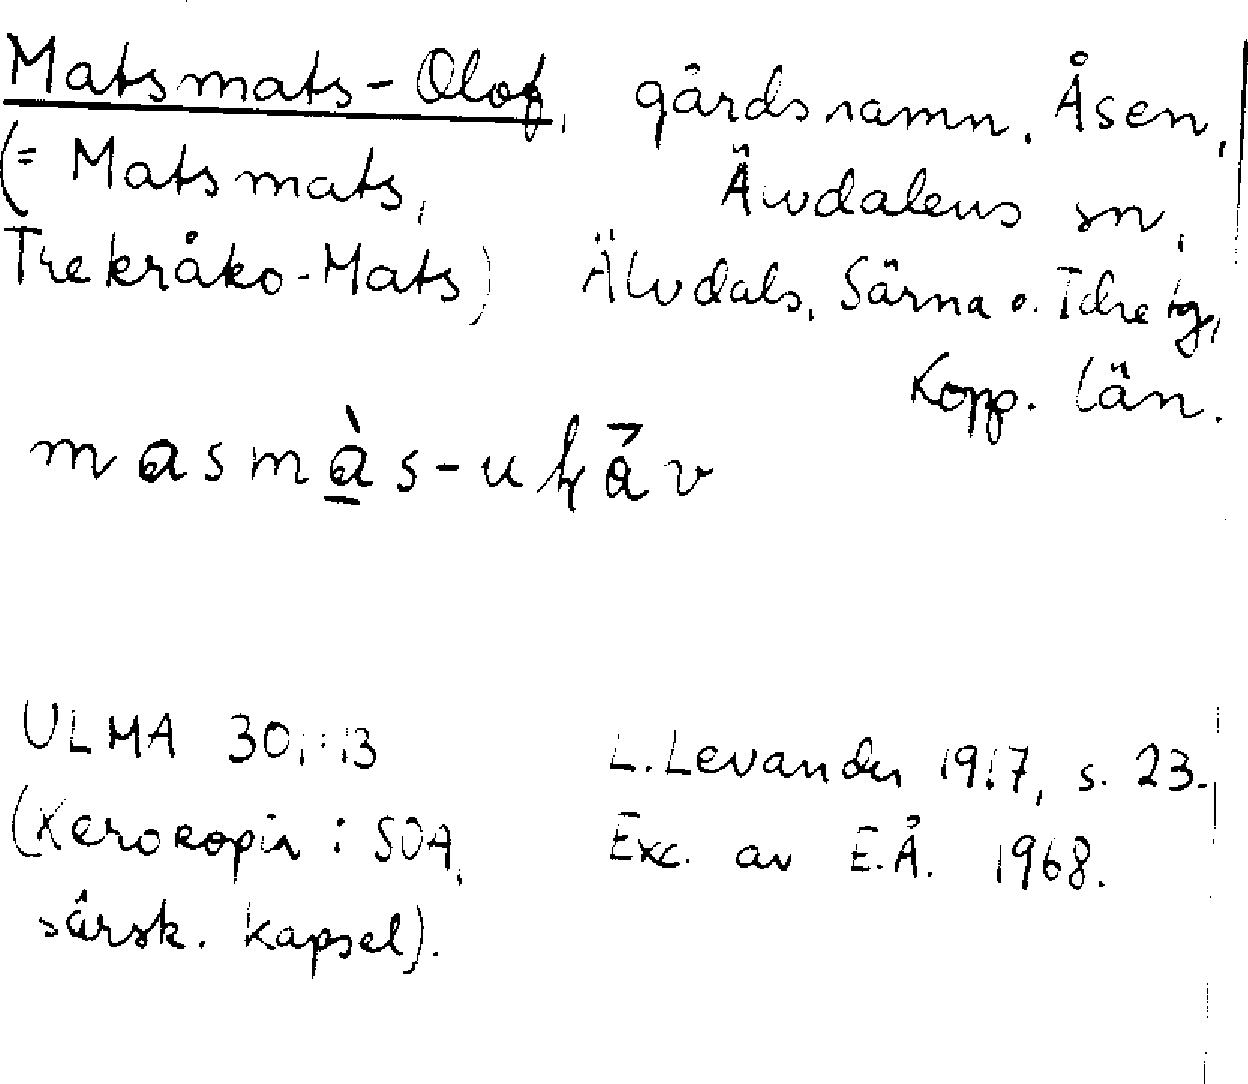 Matsmats-Olof, gårdsnamn. Åsen,
(= Matsmats, Älvdalens sn,
Trekråko-Mats) Älvdals, Särna o. Idre tg,
Kopp. län.
masmàs-u
ULMA 301:13
L. Levander 1917, s. 23.
(Xerokopia i SOA, Exc. av E.Å. 1968.
särsk. kapsel).